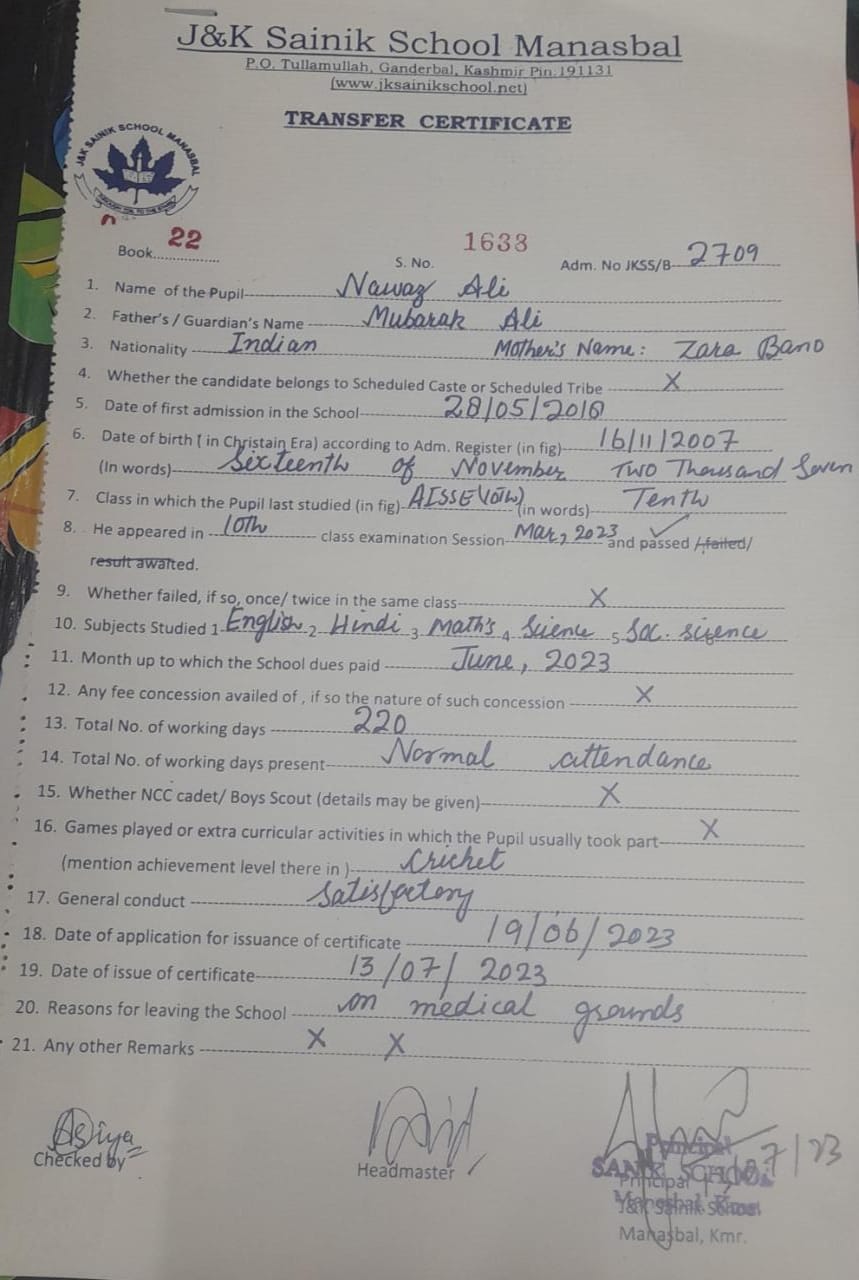 J&K Sainik School Manasbal
P.O. Tullamullah, Ganderbal, Kashmir Pin.191131
(www.jksainikschool.net)
TRANSFER CERTIFICATE
J&K SAINIK SCHOOL MANASBAL
Book 22 S. No. 1633 Adm. No JKSS/B 2709
1. Name of the Pupil Nawaz Ali
2. Father's / Guardian's Name Mubarak Ali
3. Nationality Indian Mother's Name: Zara Bano
4. Whether the candidate belongs to Scheduled Caste or Scheduled Tribe X
5. Date of first admission in the School 28/05/2018
6. Date of birth ( in Christain Era) according to Adm. Register (in fig) 16/11/2007
(In words) Sixteenth of November Two Thousand Seven
7. Class in which the Pupil last studied (in fig) AISSE (10th) (in words) Tenth
8. He appeared in 10th class examination Session Mar, 2023 and passed /failed/
result awaited.
9. Whether failed, if so, once/ twice in the same class X
10. Subjects Studied 1 English 2 Hindi 3 Math's 4 Science 5 Soc. science
11. Month up to which the School dues paid June, 2023
12. Any fee concession availed of , if so the nature of such concession X
13. Total No. of working days 220
14. Total No. of working days present Normal attendance
15. Whether NCC cadet/ Boys Scout (details may be given) X
16. Games played or extra curricular activities in which the Pupil usually took part X
(mention achievement level there in ) Cricket
17. General conduct Satisfactory
18. Date of application for issuance of certificate 19/06/2023
19. Date of issue of certificate 13/07/2023
20. Reasons for leaving the School on medical grounds
21. Any other Remarks X X
Asiya
Checked by
Headmaster
Principal
Principal
J&K Sainik School
Manasbal, Kmr.